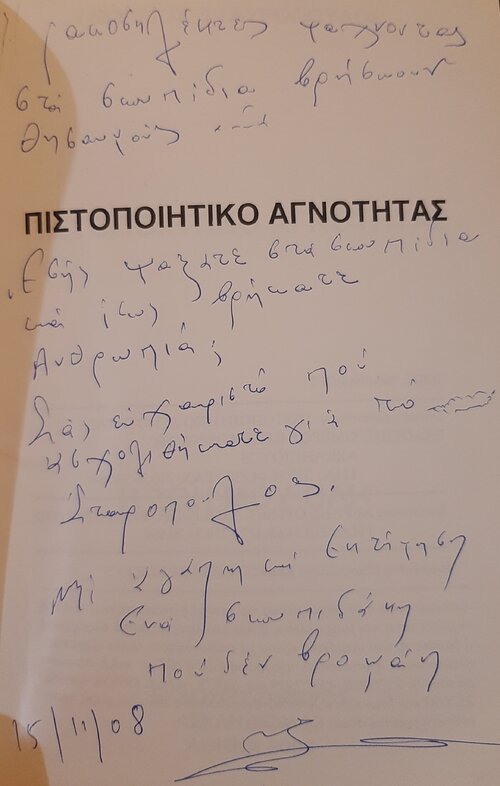 ρακοσηλέκτες ψάχνοντας
στά σκουπίδια βρήσκουν
θησαυρούς
ΠΙΣΤΟΠΟΙΗΤΙΚΟ ΑΓΝΟΤΗΤΑΣ
Εσής ψάξατε στα σκουπίδια
καί ίσως βρήκατε
Ανθρωπιά;
Σάς εύχαριστώ πού
ασχοληθήκατε γιά τό
Σταυρόπουλος.
Μέ αγάπη καί Εκτίμηση
Ενα σκουπιδάκη
πού δέν βρομάη
15/11/08